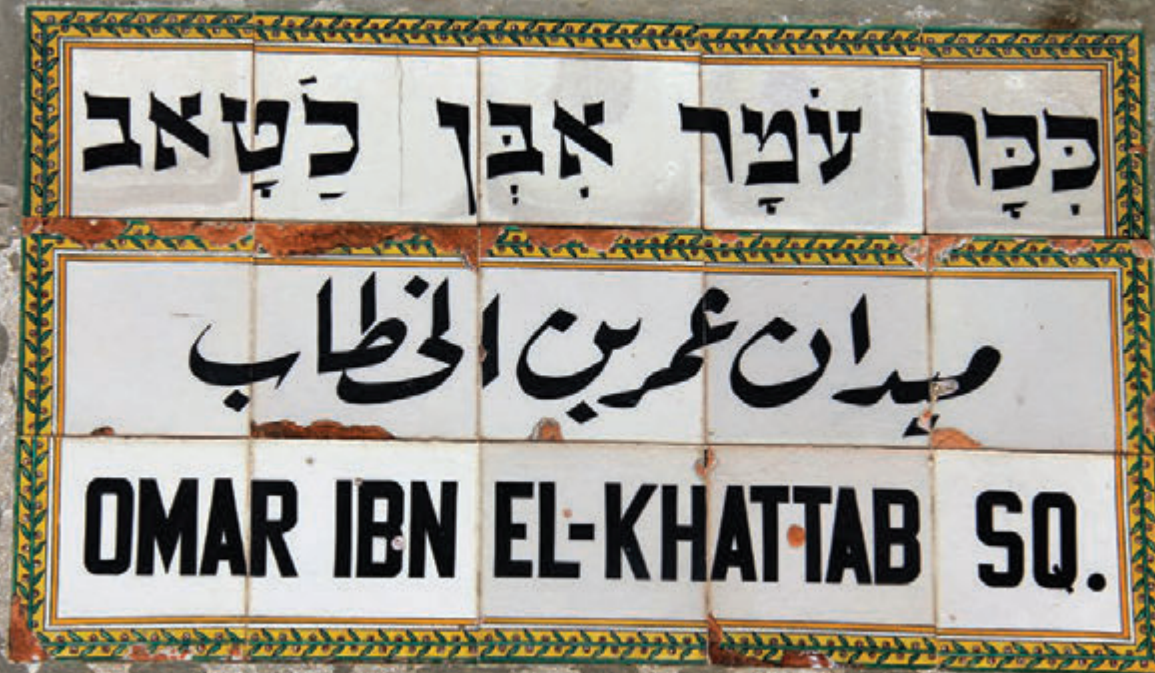 כִּכָּר עֹמָר אִבְּן כַֿטָאב
ميدان عمر بن الخطاب
OMAR IBN EL-KHATTAB SQ.